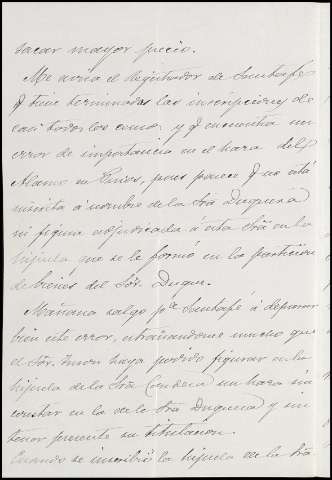 sacar mayor precio.
Me avisa el Registrador de Santafe
q tiene terminadas las inscripciones de
casi todos los censos y q encuentra un
error de importancia en el haza del
Alamo en Pinos, pues parece q no está
inscrita á nombre de la Sra Duquesa
ni figura adjudicada á esta Sra en la
hijuela que se le formó en la particion
de bienes del Sor. Duque.
Mañana salgo pa Santafé á depurar
bien este error, extrañandome mucho que
el Sor. haya podido figurar en la
hijuela de la Sra Condesa un haza sin
constar en la de la Sra Duquesa y sin
tener presente su titulacion.
Cuando se inscribió la hijuela de la Sra